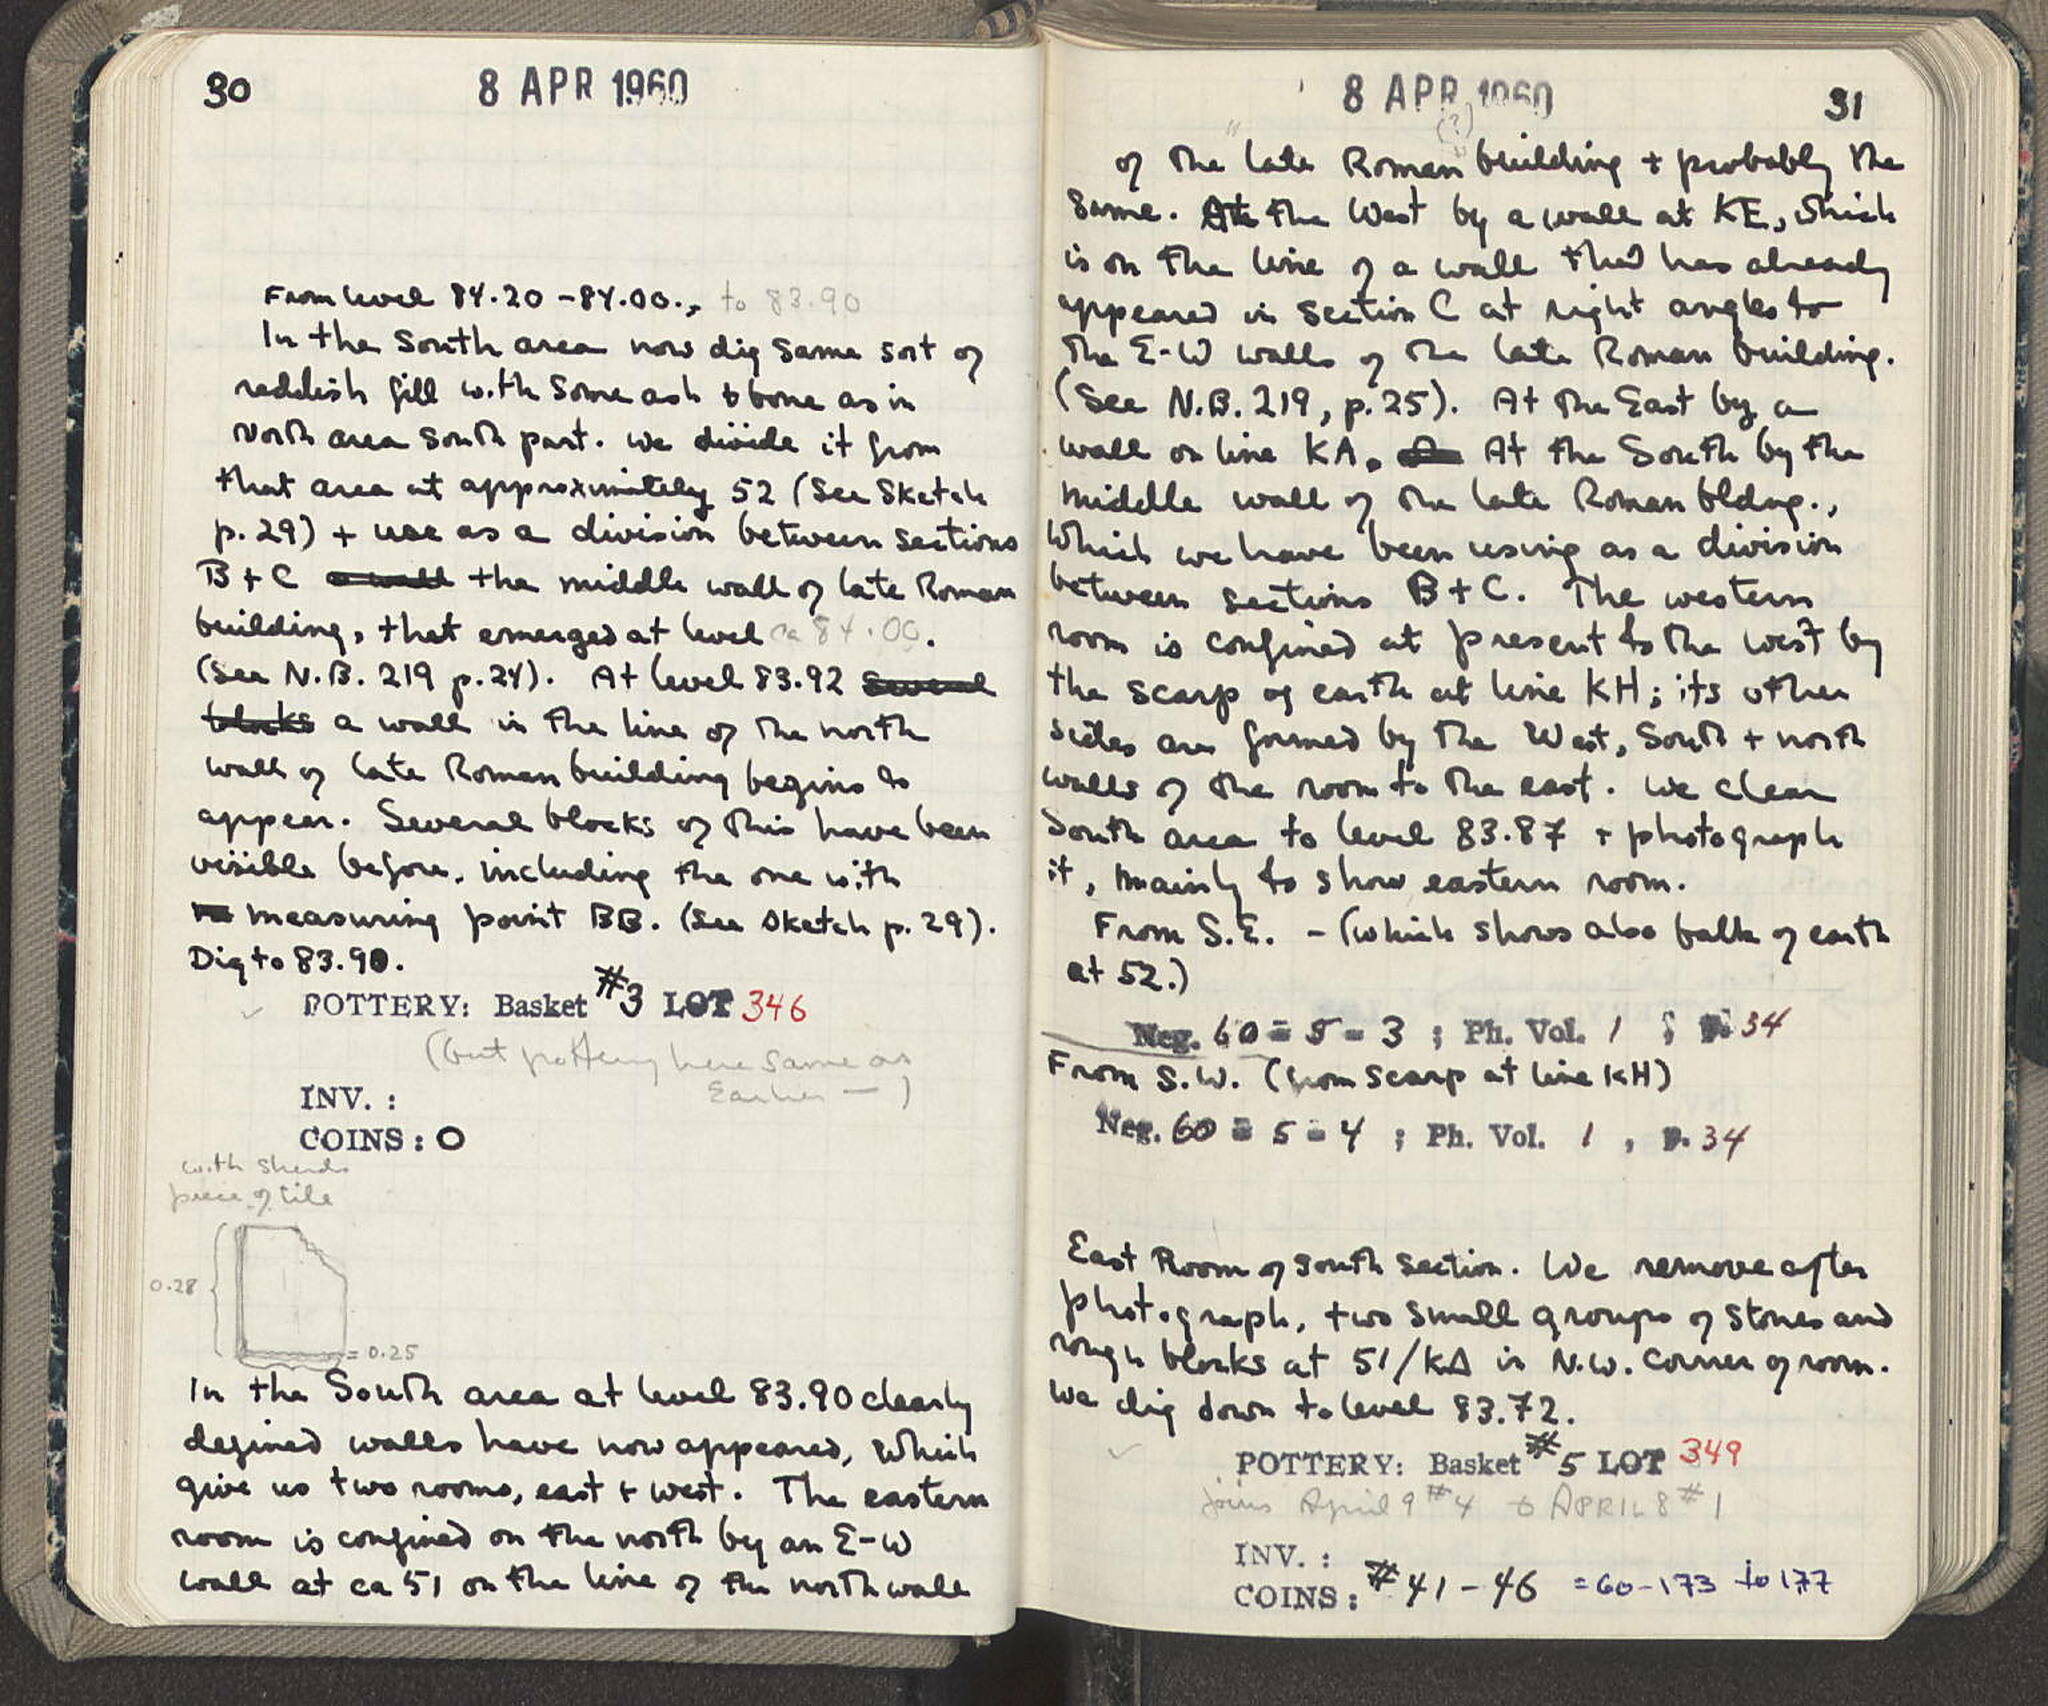 30
8 APR 1960
From level 84.20 - 84.00., to 83.90
In the South area now dig same sort of
reddish fill with some ash & bone as in
North area South part. We divide it from
that area at approximately 52 (See Sketch
p. 29) + use as a division between sections
B + C a wall the middle wall of late Roman
building, that emerged at level ca 84.00.
(See N.B. 219 p. 24). At level 83.92 several
blocks a wall in the line of the north
wall of late Roman building begins to
appear. Several blocks of this have been
visible before, including the one with
measuring point BB. (See Sketch p. 29).
Dig to 83.90.
POTTERY: Basket #3 LOT 346
(but pottery here same as
Earlier — )
INV. :
COINS: 0
with sherds
piece of tile
0.28
= 0.25
In the South area at level 83.90 clearly
defined walls have now appeared, which
give us two rooms, east + west. The eastern
room is confined on the north by an E-W
wall at ca 51 on the line of the north wall
8 APR 1960
31
(?)
of the "late Roman" building + probably the
same. At the West by a wall at KE, which
is on the line of a wall that has already
appeared in Section C at right angles to
the E-W walls of the late Roman building.
(See N.B. 219, p. 25). At the East by a
wall on line KA. At the South by the
middle wall of the late Roman bldng.,
which we have been using as a division
between sections B + C. The western
room is confined at present to the west by
the scarp of earth at line KH; its other
sides are formed by the West, South + north
walls of the room to the east. We clean
South area to level 83.87 + photograph
it, mainly to show eastern room.
From S.E. - (which shows also balk of earth
at 52.)
Neg. 60 - 5 - 3 ; Ph. Vol. 1 ; p. 34
From S.W. (from scarp at line KH)
Neg. 60 - 5 - 4 ; Ph. Vol. 1 , p. 34
East Room of South Section. We remove after
photograph, two small groups of stones and
rough blocks at 51/KA in N.W. corner of room.
We dig down to level 83.72.
POTTERY: Basket #5 LOT 349
joins April 9 #4 & APRIL 8 #1
INV. :
COINS: #41-46 = 60-173 to 177